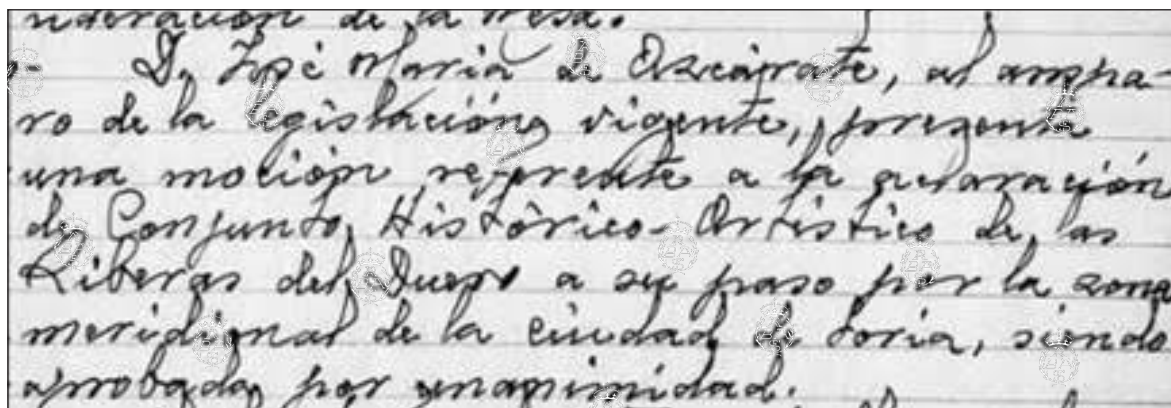 de la Mesa.
D. José María de Azcárate, al ampa-
ro de la legislación vigente, presenta
una moción referente a la declaración
de Conjunto Histórico-Artístico de las
Riberas del Duero a su paso por la zona
meridional de la ciudad de Soria, siendo
aprobada por unanimidad.